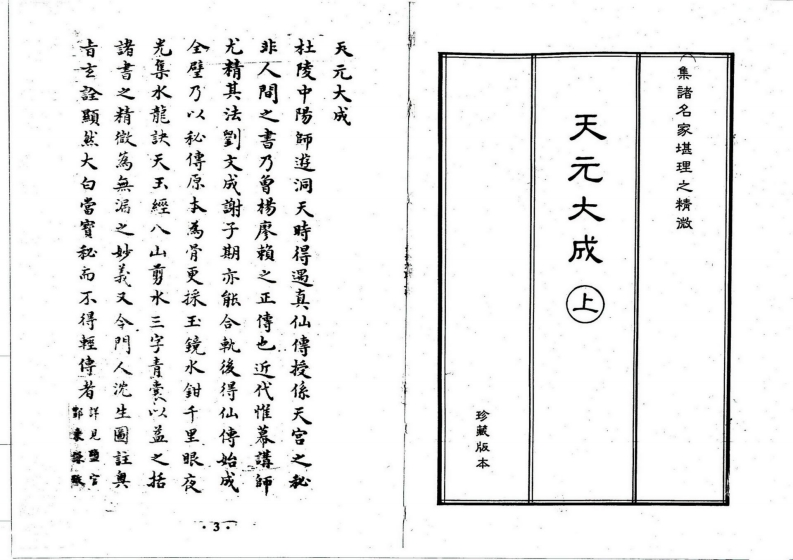 集諸名家堪理之精微
天元大成
上
珍藏版本
天元大成
杜陵中陽師遊洞天時得遇真仙傳授係天宮之秘
非人間之書乃曾楊廖賴之正傳也近代惟幕講師
尤精其法劉文成謝子期亦能合軌後得仙傳始成
全璧乃以秘傳原本為骨更採玉鏡水鉗千里眼夜
光集水龍訣天玉經八山剪水三字青囊以益之括
諸書之精微為無漏之妙義又令門人沈生圖註奧
旨玄詮顯然大白當寶秘而不得輕傳者
詳見鹽官
·3·